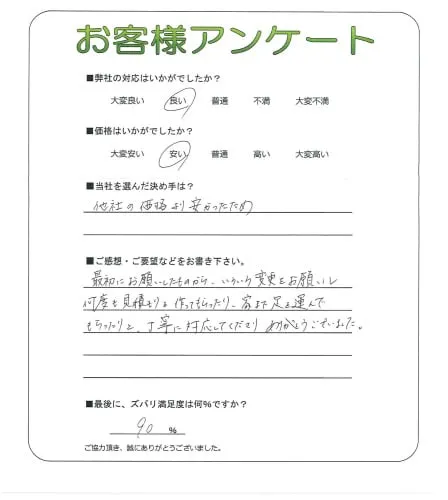 お客様アンケート
■弊社の対応はいかがでしたか？
大変良い 良い 普通 不満 大変不満
■価格はいかがでしたか？
大変安い 安い 普通 高い 大変高い
■当社を選んだ決め手は？
他社の価格より安かったため
■ご感想・ご要望などをお書き下さい。
最初にお願いしたものから、いろいろ変更をお願いし
何度も見積もりを作ってもらったり、家まで足を運んで
もらったりと、丁寧に対応してくださりありがとうございました。
■最後に、ズバリ満足度は何％ですか？
90 %
ご協力頂き、誠にありがとうございました。